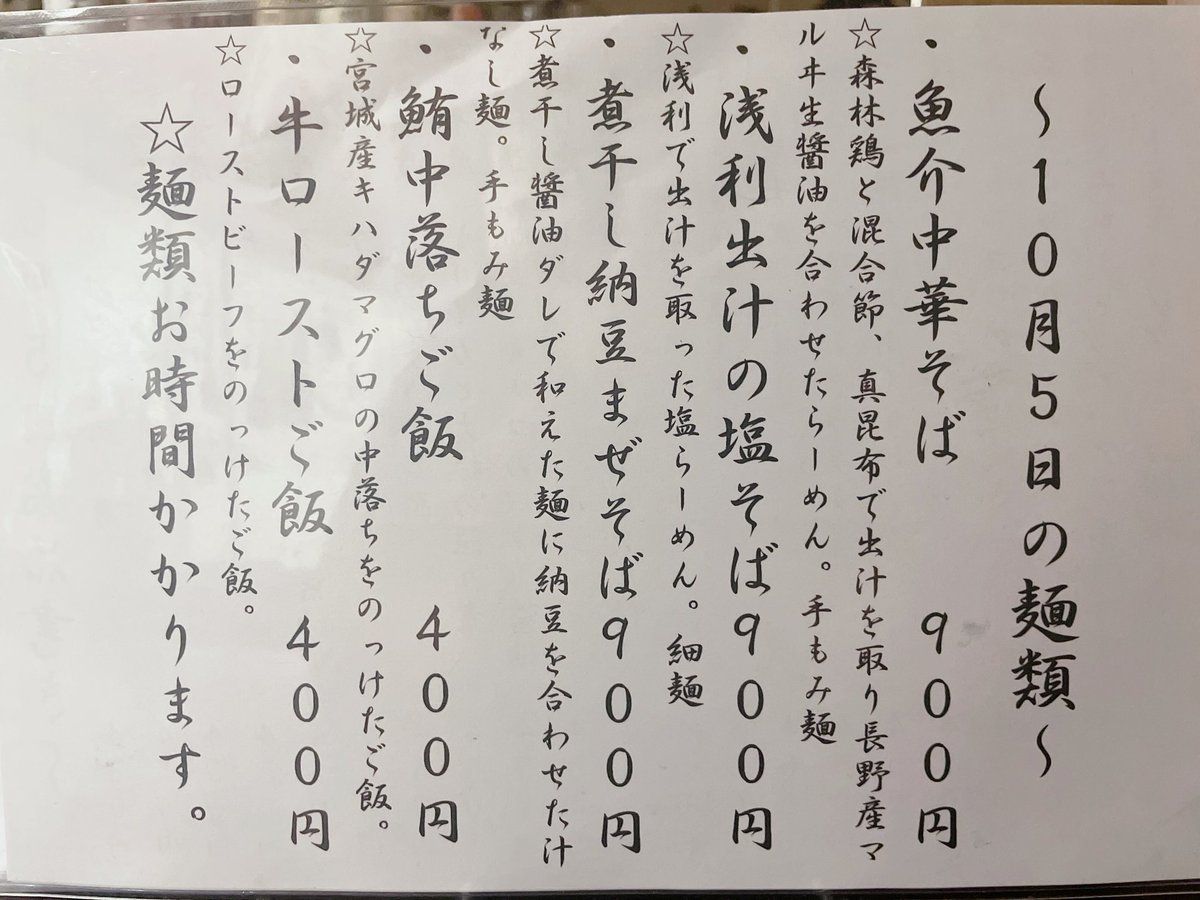 ～10月5日の麺類～
・魚介中華そば 900円
☆森林鶏と混合節、真昆布で出汁を取り長野産マ
ルヰ生醤油を合わせたらーめん。手もみ麺
・浅利出汁の塩そば900円
☆浅利で出汁を取った塩らーめん。細麺
・煮干し納豆まぜそば900円
☆煮干し醤油ダレで和えた麺に納豆を合わせた汁
なし麺。手もみ麺
・鮪中落ちご飯 400円
☆宮城産キハダマグロの中落ちをのっけたご飯。
・牛ローストご飯 400円
☆ローストビーフをのっけたご飯。
☆麺類お時間かかります。